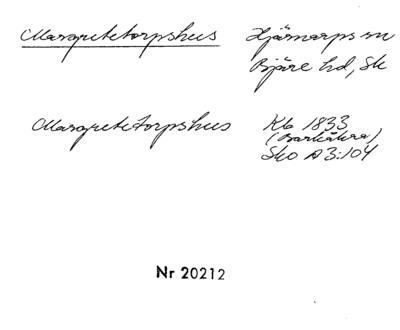 Margretetorpshus Hjärnarps sn
Bjäre hd, Sk
Margretetorpshus Kb 1833
(Barkåkra)
Sko A3:104
Nr 20212